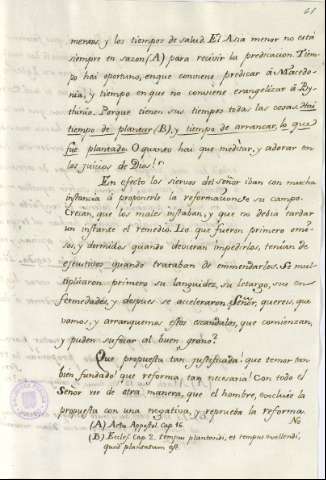 61
menaz, y los tiempos de salud. El Asia menor no está
siempre en sazon (A) para recivir la predicacion. Tiem-
po hai oportuno, en que conviene predicar á Macedo-
nia, y tiempo en que no conviene evangelizar á By-
thinia. Porque tienen sus tiempos todas las cosas. Hai
tiempo de plantar (B), y tiempo de arrancar, lo que
fué plantado. O quanto hai que meditar, y adorar en
los juicios de Dios!
En efecto los siervos del señor iban con mucha
instancia á proponerle la reforma en su campo.
Creían, que los males instaban, y que no debia tardar
un instante el remedio. Lo que fueron primero omi-
sos, y dormidos quando devieran impedirlos, tenian de
executivos quando trataban de enmendarlos. Se mul-
tiplicaron primero su languidez, su letargo, sus en-
fermedades, y despues se aceleraron. Señor, quereis, que
vamos, y arranquemos estos escandalos, que comienzan,
y pueden sufocar al buen grano?
Que propuesta tan justificada! que temor tan
bien fundado! que reforma tan necesaria! Con todo el
Señor ve de otra manera, que el hombre, concluie la
propuesta con una negativa, y reprueba la reforma.
No
(A) Actu. Appostol. Cap. 16.
(B) Eccles. Cap. 2. tempus plantandi, et tempus evellendi,
quod plantatum est.